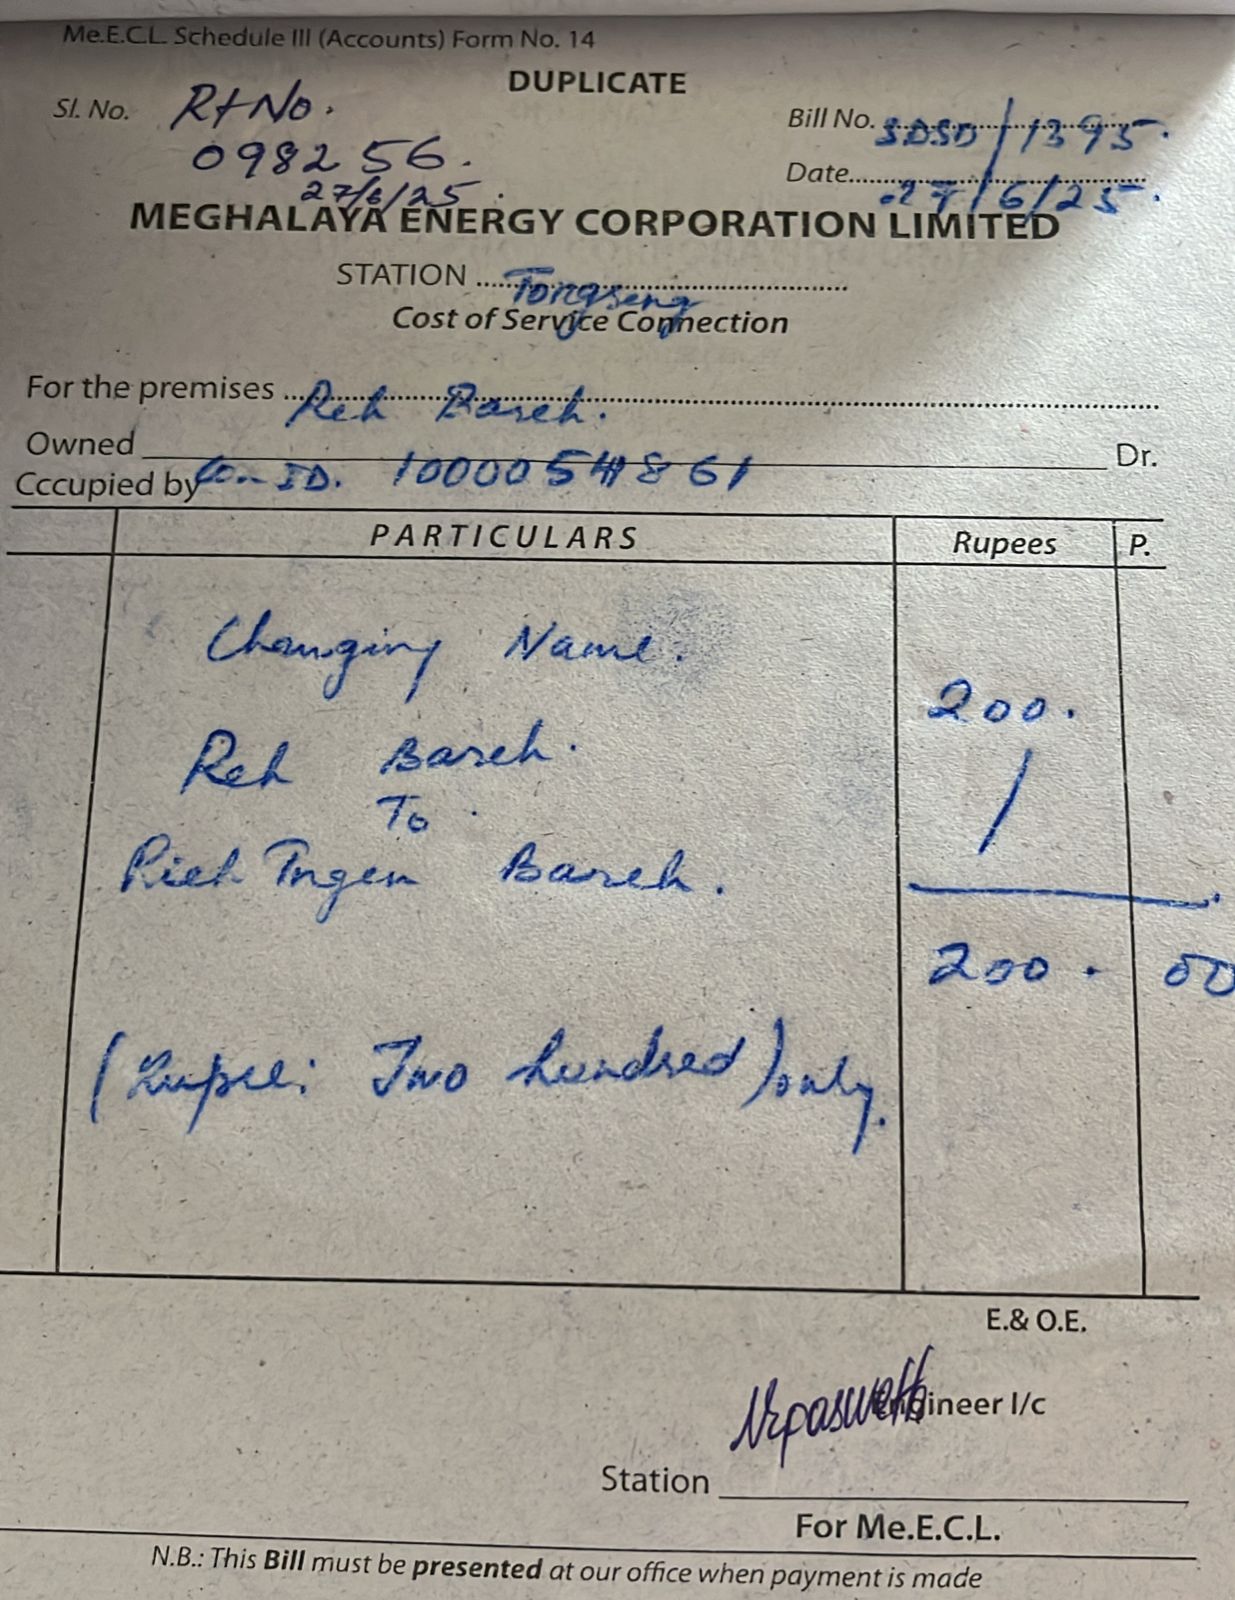 Me.E.C.L. Schedule III (Accounts) Form No. 14
DUPLICATE
Sl. No. Rt No.
098256.
27/6/25.
Bill No. SDSD/1395.
Date 27/6/25.
MEGHALAYA ENERGY CORPORATION LIMITED
STATION Tongseng
Cost of Service Connection
For the premises Reh Bareh.
Owned Dr.
Cccupied by Con ID.
PARTICULARS Rupees P.
Changing Name.
200.
Reh Bareh.
To
Rieh Bareh.
200. 00
(Rupee: Two hundred) only.
E.& O.E.
Engineer I/c
Station
For Me.E.C.L.
N.B.: This Bill must be presented at our office when payment is made